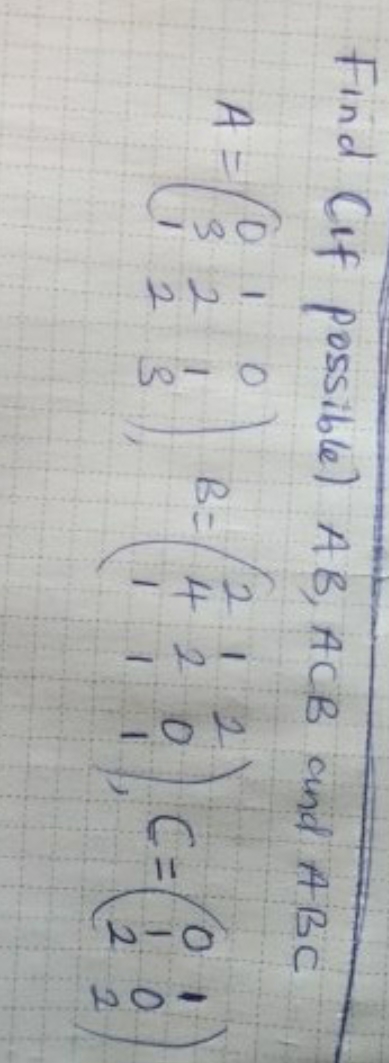 Find (if possible) AB, ACB and ABC
A = (0 1 0
3 2 1
1 2 3), B = (2 1 2
4 2 0
1 1 1), C = (0 1
1 0
2 2)